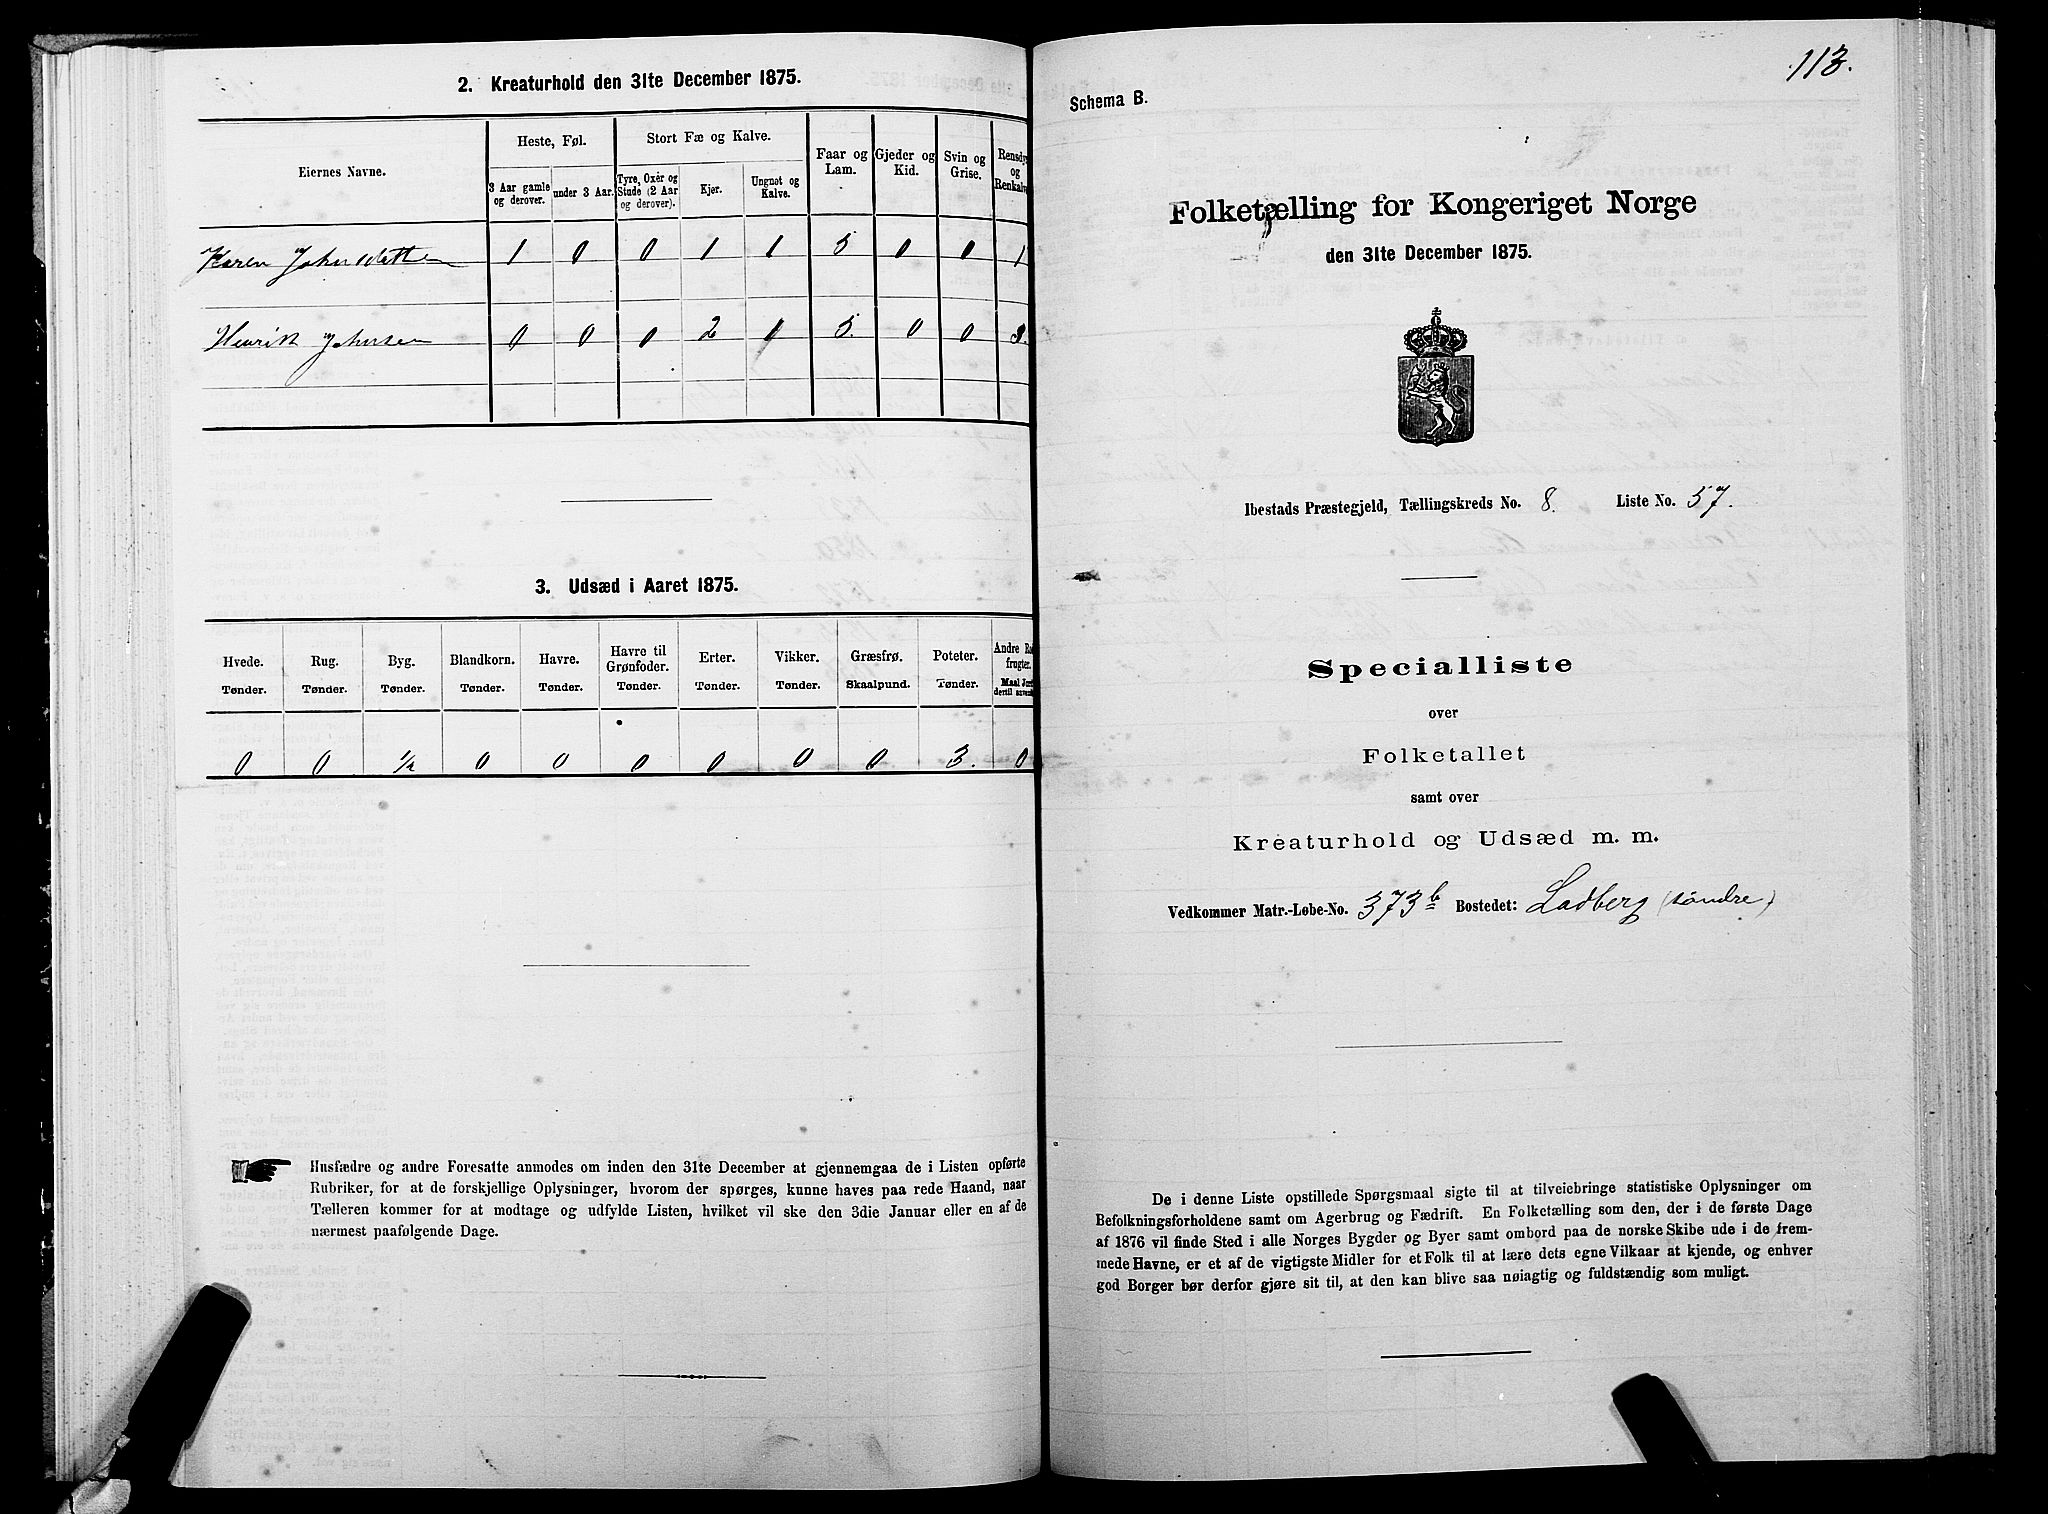 2. Kreaturhold den 31te December 1875.
Eiernes Navne.
Heste, Føl.
Stort Fæ og Kalve.
3 Aar gamle og derover.
under 3 Aar.
Tyre, Oxer og Stude (2 Aar og derover).
Kjør.
Ungnøt og Kalve.
Faar og Lam.
Gjeder og Kid.
Svin og Grise.
Rensdyr og Renkalve
Karen Johnsdatter 1 0 0 1 1 5 0 0 1
Henrik Johnsen 0 0 0 2 0 5. 0 0 3.
3. Udsæd i Aaret 1875.
Hvede. Rug. Byg. Blandkorn. Havre. Havre til Grønfoder. Erter. Vikker. Græsfrø. Poteter. Andre
frugter.
Tønder. Tønder. Tønder. Tønder. Tønder. Tønder. Tønder. Tønder. Skaalpund. Tønder. Maal
dertil
0 0 1/2 0 0 0 0 0 0 3. 0
Husfædre og andre Foresatte anmodes om inden den 31te December at gjennemgaa de i Listen opførte
Rubriker, for at de forskjellige Oplysninger, hvorom der spørges, kunne haves paa rede Haand, naar
Tælleren kommer for at modtage og udfylde Listen, hvilket vil ske den 3die Januar eller en af de
nærmest paafølgende Dage.
113.
Schema B.
Folketælling for Kongeriget Norge
den 31te December 1875.
Ibestads Præstegjeld, Tællingskreds No. 8. Liste No. 57.
Specialliste
over
Folketallet
samt over
Kreaturhold og Udsæd m. m.
Vedkommer Matr.-Løbe-No. 373b Bostedet: Ladberg (søndre)
De i denne Liste opstillede Spørgsmaal sigte til at tilveiebringe statistiske Oplysninger om
Befolkningsforholdene samt om Agerbrug og Fædrift. En Folketælling som den, der i de første Dage
af 1876 vil finde Sted i alle Norges Bygder og Byer samt ombord paa de norske Skibe ude i de frem-
mede Havne, er et af de vigtigste Midler for et Folk til at lære dets egne Vilkaar at kjende, og enhver
god Borger bør derfor gjøre sit til, at den kan blive saa nøiagtig og fuldstændig som muligt.